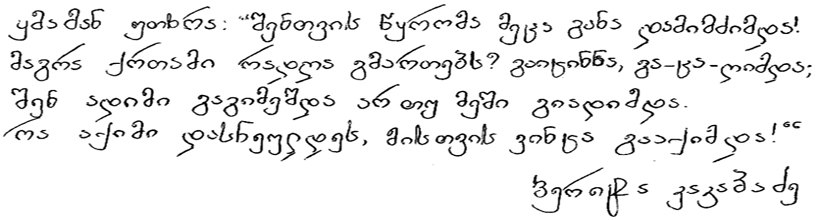 ყმამან უთხრა: "შენთვის წყრომა მეცა განა დამიმძიმდა!
მაგრა ქრთამი რადღა გმართებს? გაიცინნა, გა-ცა-ღიმდა;
შენ ადიმი გაგიმეშდა არ თუ მეში გიადიმდა.
რა აქიმი დასნეულდეს, მისთვის ვინცა გააქიმდა!"
კაკაბაძე